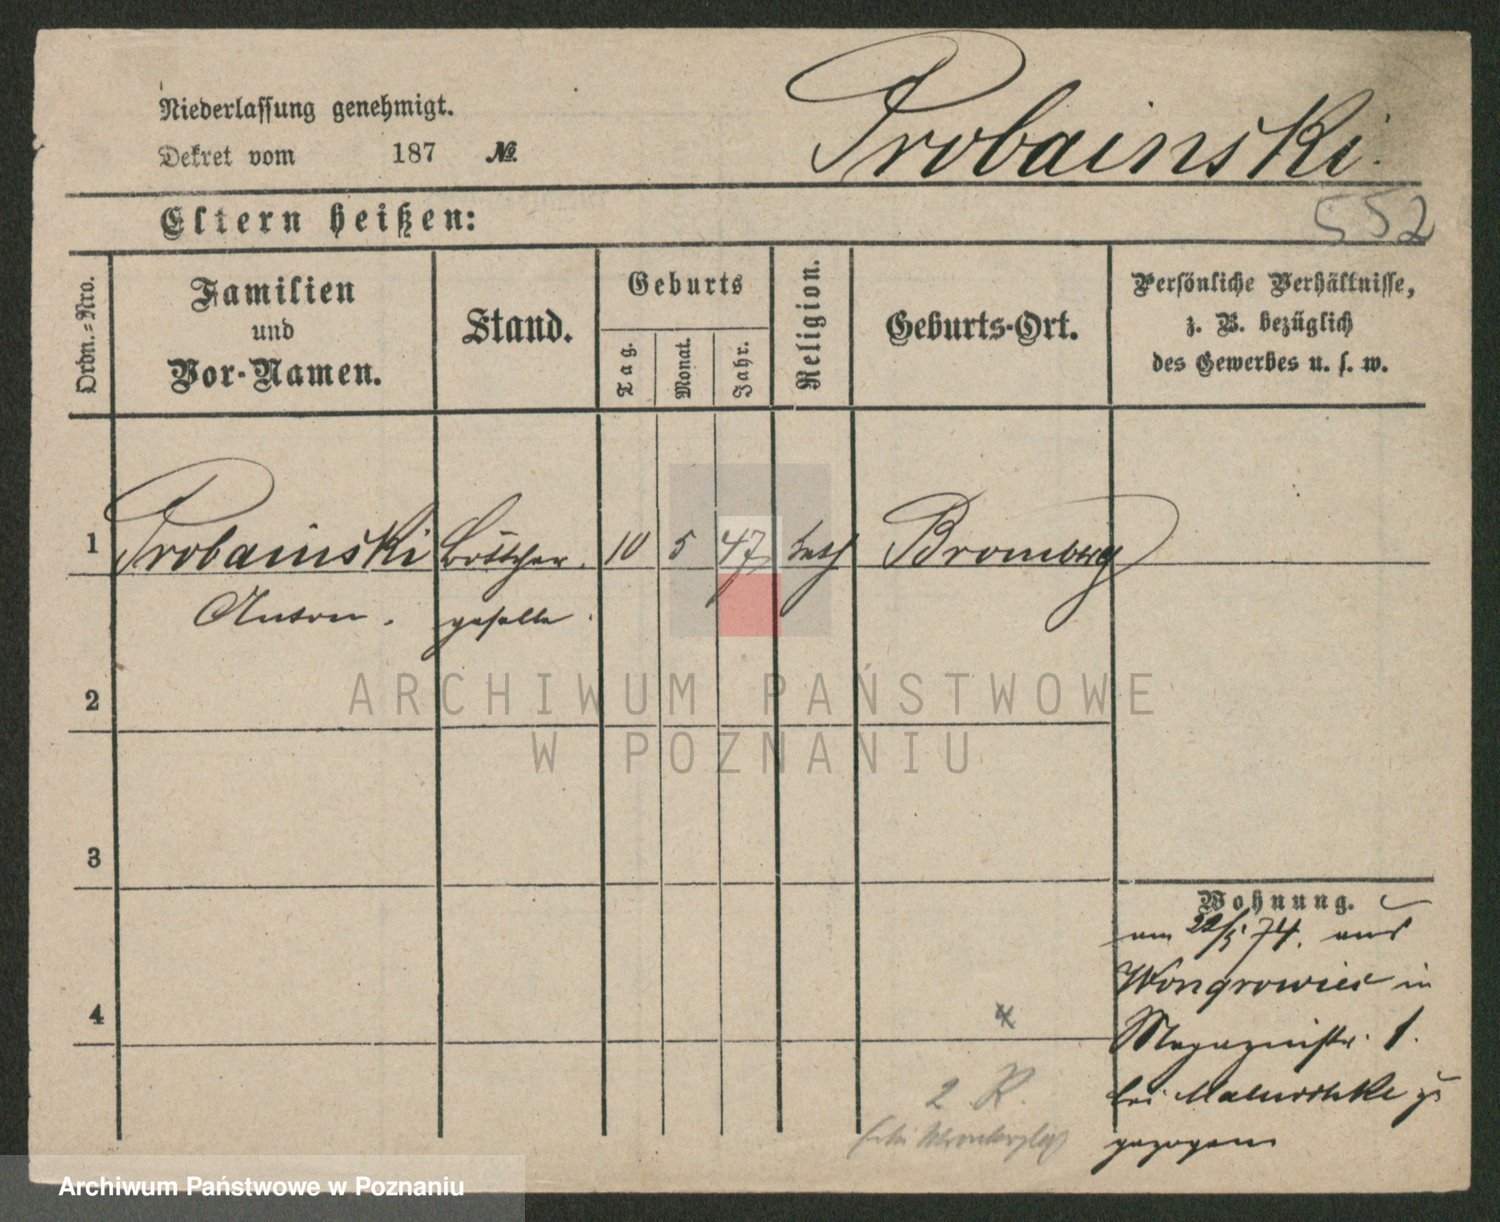 Niederlassung genehmigt.
Probainski.
Dekret vom 187 №
552
Eltern heißen:
Ordn.-Nro.
Familien
und
Vor-Namen.
Stand.
Geburts
Tag.
Monat.
Jahr.
Religion.
Geburts-Ort.
Persönliche Verhältnisse,
z. B. bezüglich
des Gewerbes u. s. w.
1 Probainski Böttcher 10 5 47 kath Bromberg
Anton. geselle.
2
3
4
Wohnung.
am 22/5 74. aus
Wongrowiec in
Magazinstr. 1.
bei zu
gezogen
2 K.
ARCHIWUM PAŃSTWOWE
W POZNANIU
Archiwum Państwowe w Poznaniu